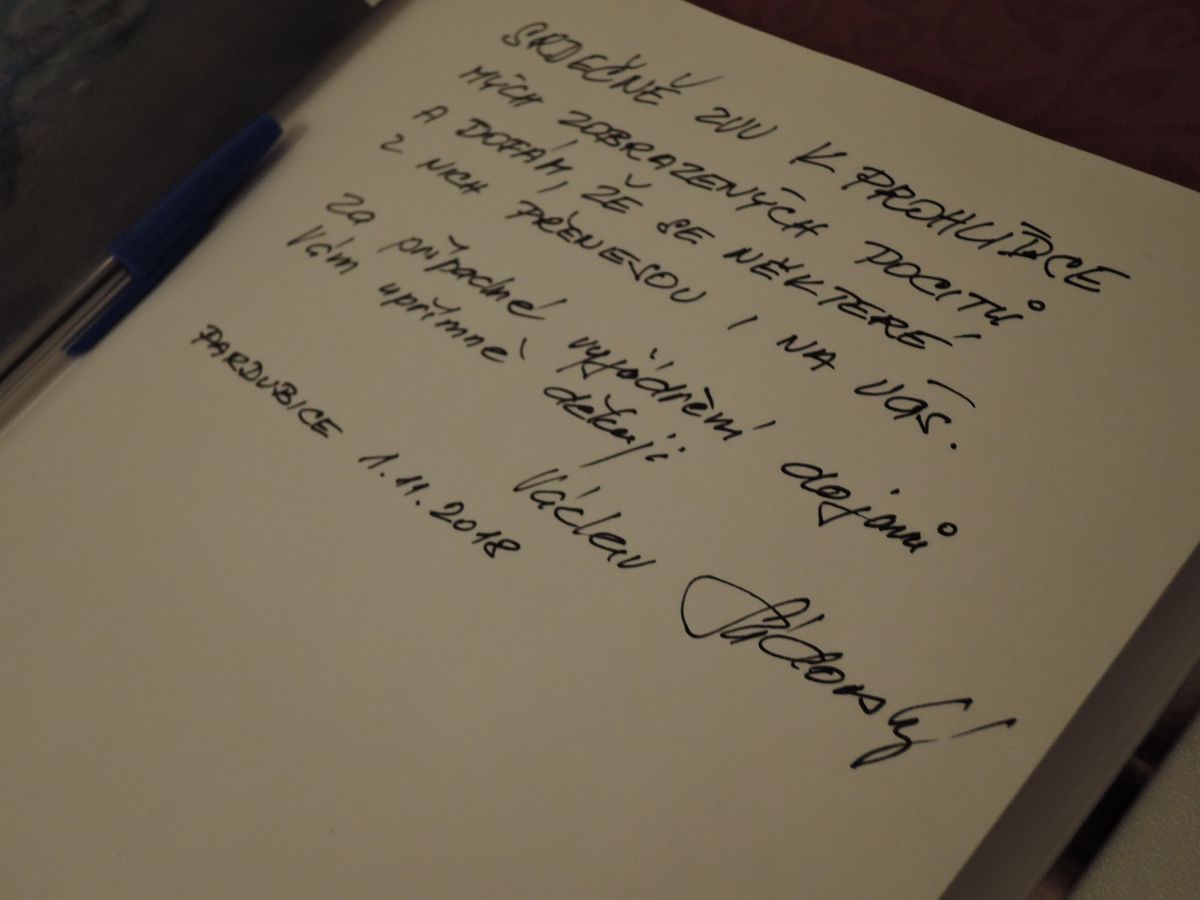 SRDEČNĚ ZVU K PROHLÍDCE
MÝCH ZOBRAZENÝCH POCITŮ
A DOFÁM, ŽE SE NĚKTERÉ
Z NICH PŘENESOU I NA VÁS.
Za případné vyjádření dojmů
Vám upřímně děkuji
Václav
PARDUBICE 1.11.2018